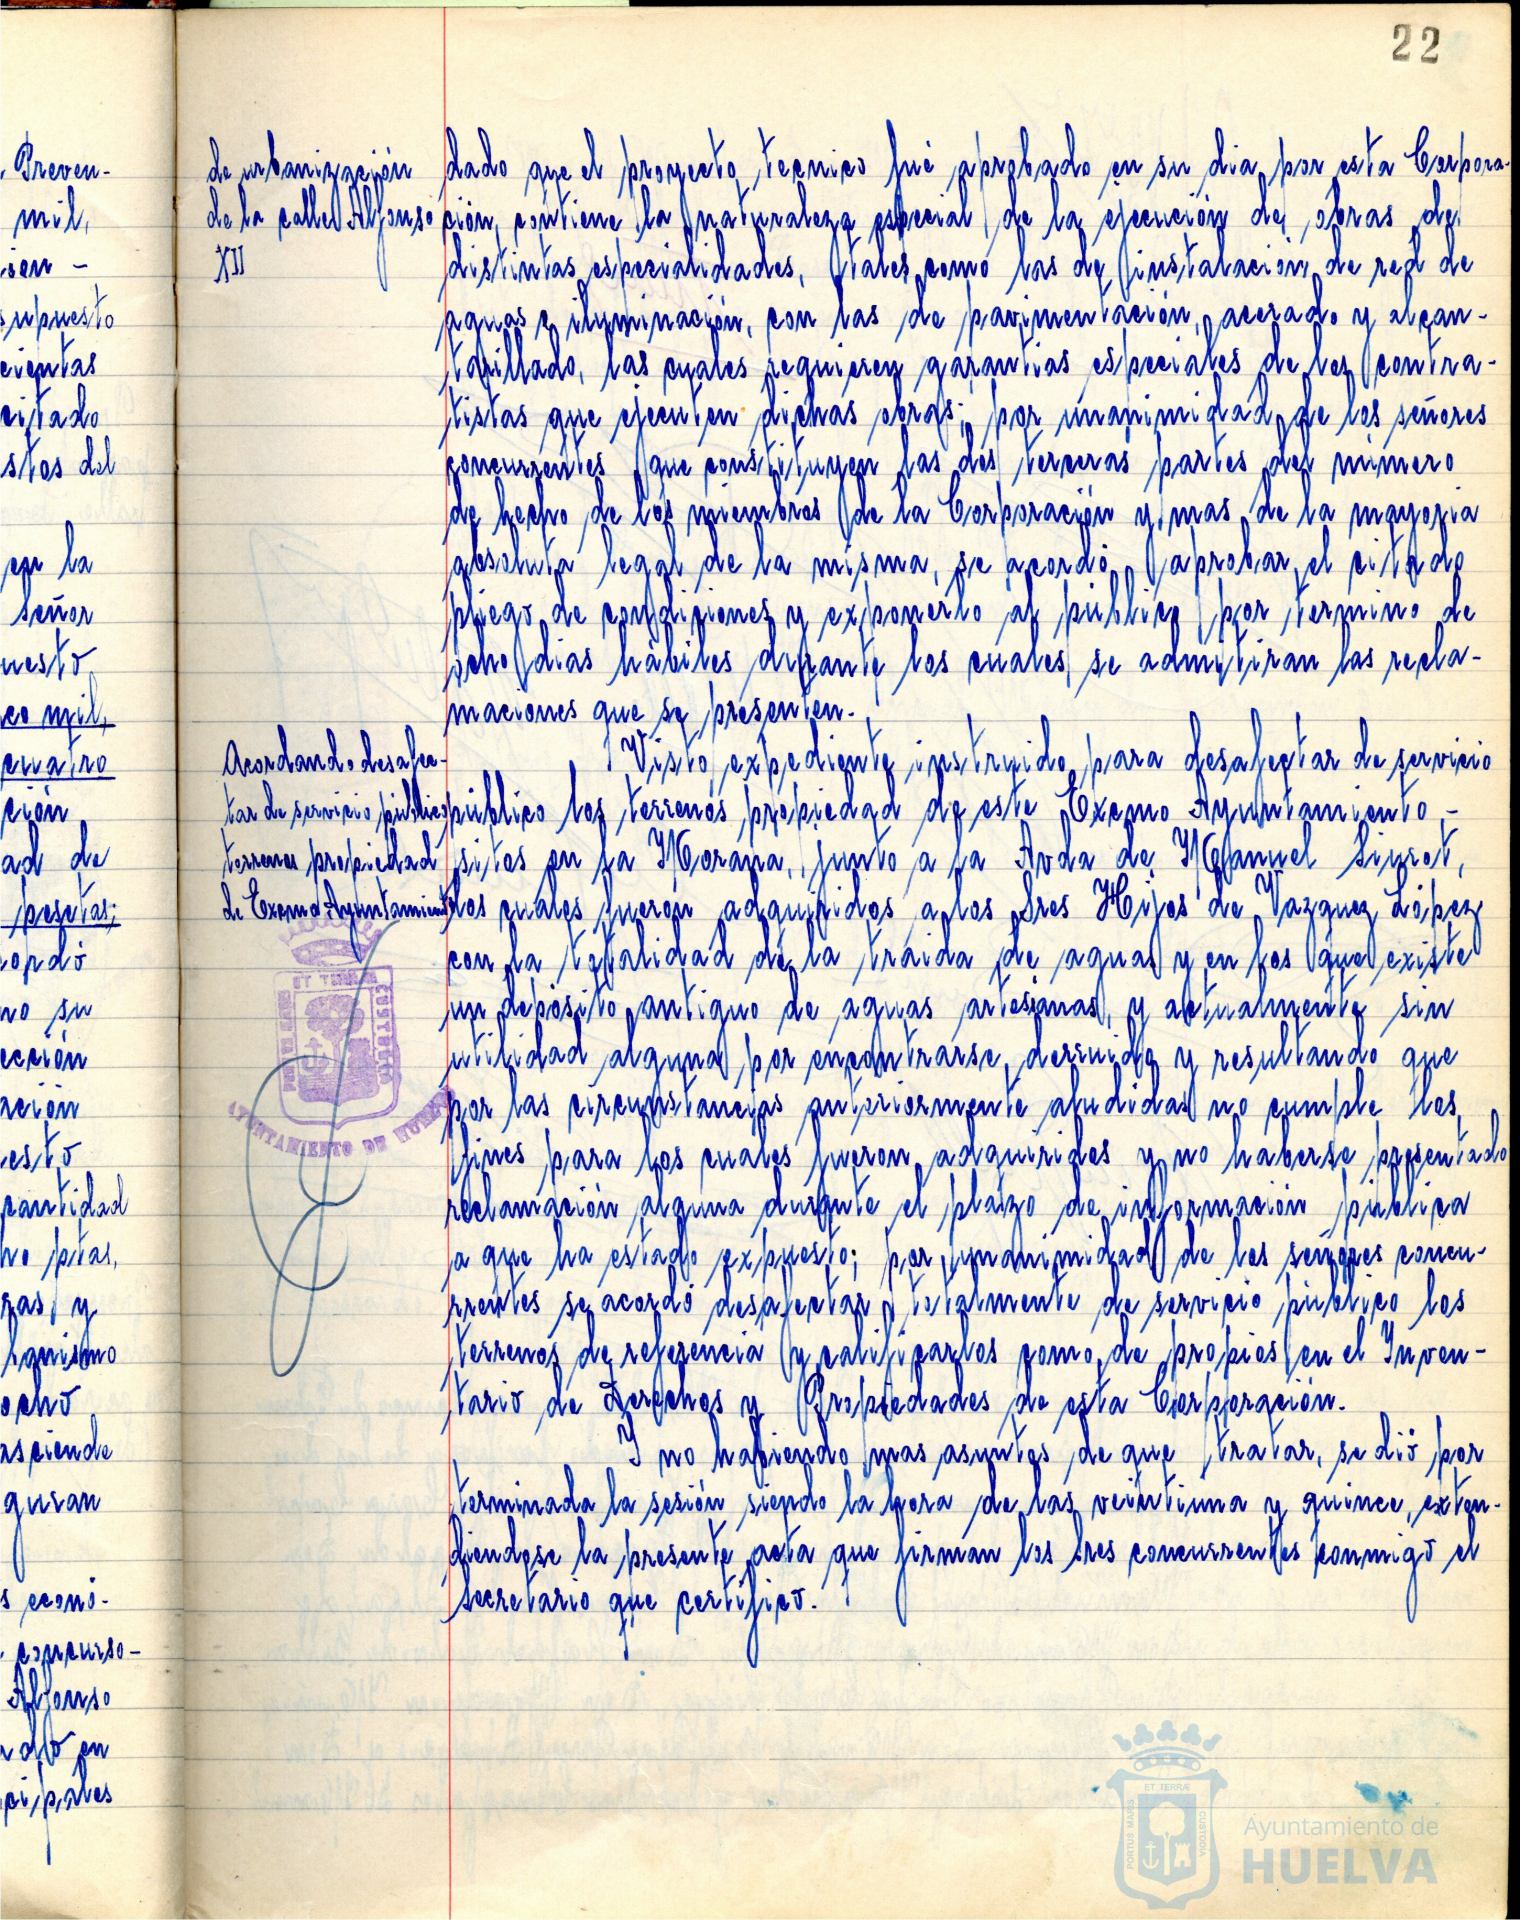 22
. Preven-
mil,
ien -
supuesto
cientas
citado
stos del
en la
señor
uesto
co mil,
cuatro
ción
ad de
pesetas;
cordó
no su
ección
ación
esto
cantidad
ho ptas,
ras y
banismo
ocho
asciende
guran
s econó-
concurso-
Alfonso
en
cipales
de urbanización
de la calle Alfonso
XII
dado que el proyecto tecnico fué aprobado en su dia por esta Corpora-
ción, contiene la naturaleza especial de la ejecución de obras de
distintas especialidades, tales como las de instalación de red de
aguas e iluminación, con las de pavimentación, acerado y alcan-
tarillado, las cuales requieren garantias especiales de los contra-
tistas que ejecuten dichas obras; por unanimidad de los señores
concurrentes que constituyen las dos terceras partes del número
de hecho de los miembros de la Corporación y mas de la mayoria
absoluta legal de la misma, se acordó aprobar el citado
pliego de condiciones y exponerlo al público por termino de
ocho dias hábiles durante los cuales se admitiran las recla-
maciones que se presenten.
Acordando desafec-
tar de servicio público
terrenos propiedad
de Excmo Ayuntamiento
Visto expediente instruido para desafectar de servicio
público los terrenos propiedad de este Excmo Ayuntamiento -
sitos en la Morana, junto a la Avda de Manuel Siurot,
los cuales fueron adquiridos a los Sres Hijos de Vazquez López
con la totalidad de la traida de aguas y en los que existe
un depósito antiguo de aguas artesianas, y actualmente sin
utilidad alguna por encontrarse derruido y resultando que
por las circunstancias anteriormente aludidas no cumple los
fines para los cuales fueron adquiridos y no haberse presentado
reclamación alguna durante el plazo de información pública
a que ha estado expuesto; por unanimidad de los señores concu-
rrentes se acordó desafectar totalmente de servicio público los
terrenos de referencia y calificarlos como de propios en el Inven-
tario de Derechos y Propiedades de esta Corporación.
Y no habiendo mas asuntos de que tratar, se dió por
terminada la sesión siendo la hora de las veintiuna y quince, exten-
diendose la presente acta que firman los Sres concurrentes conmigo el
Secretario que certifico.
ET TERRAE CUSTODIA
AYUNTAMIENTO DE HUELVA
PORTUS MARIS
ET TERRÆ
CUSTODIA
Ayuntamiento de
HUELVA